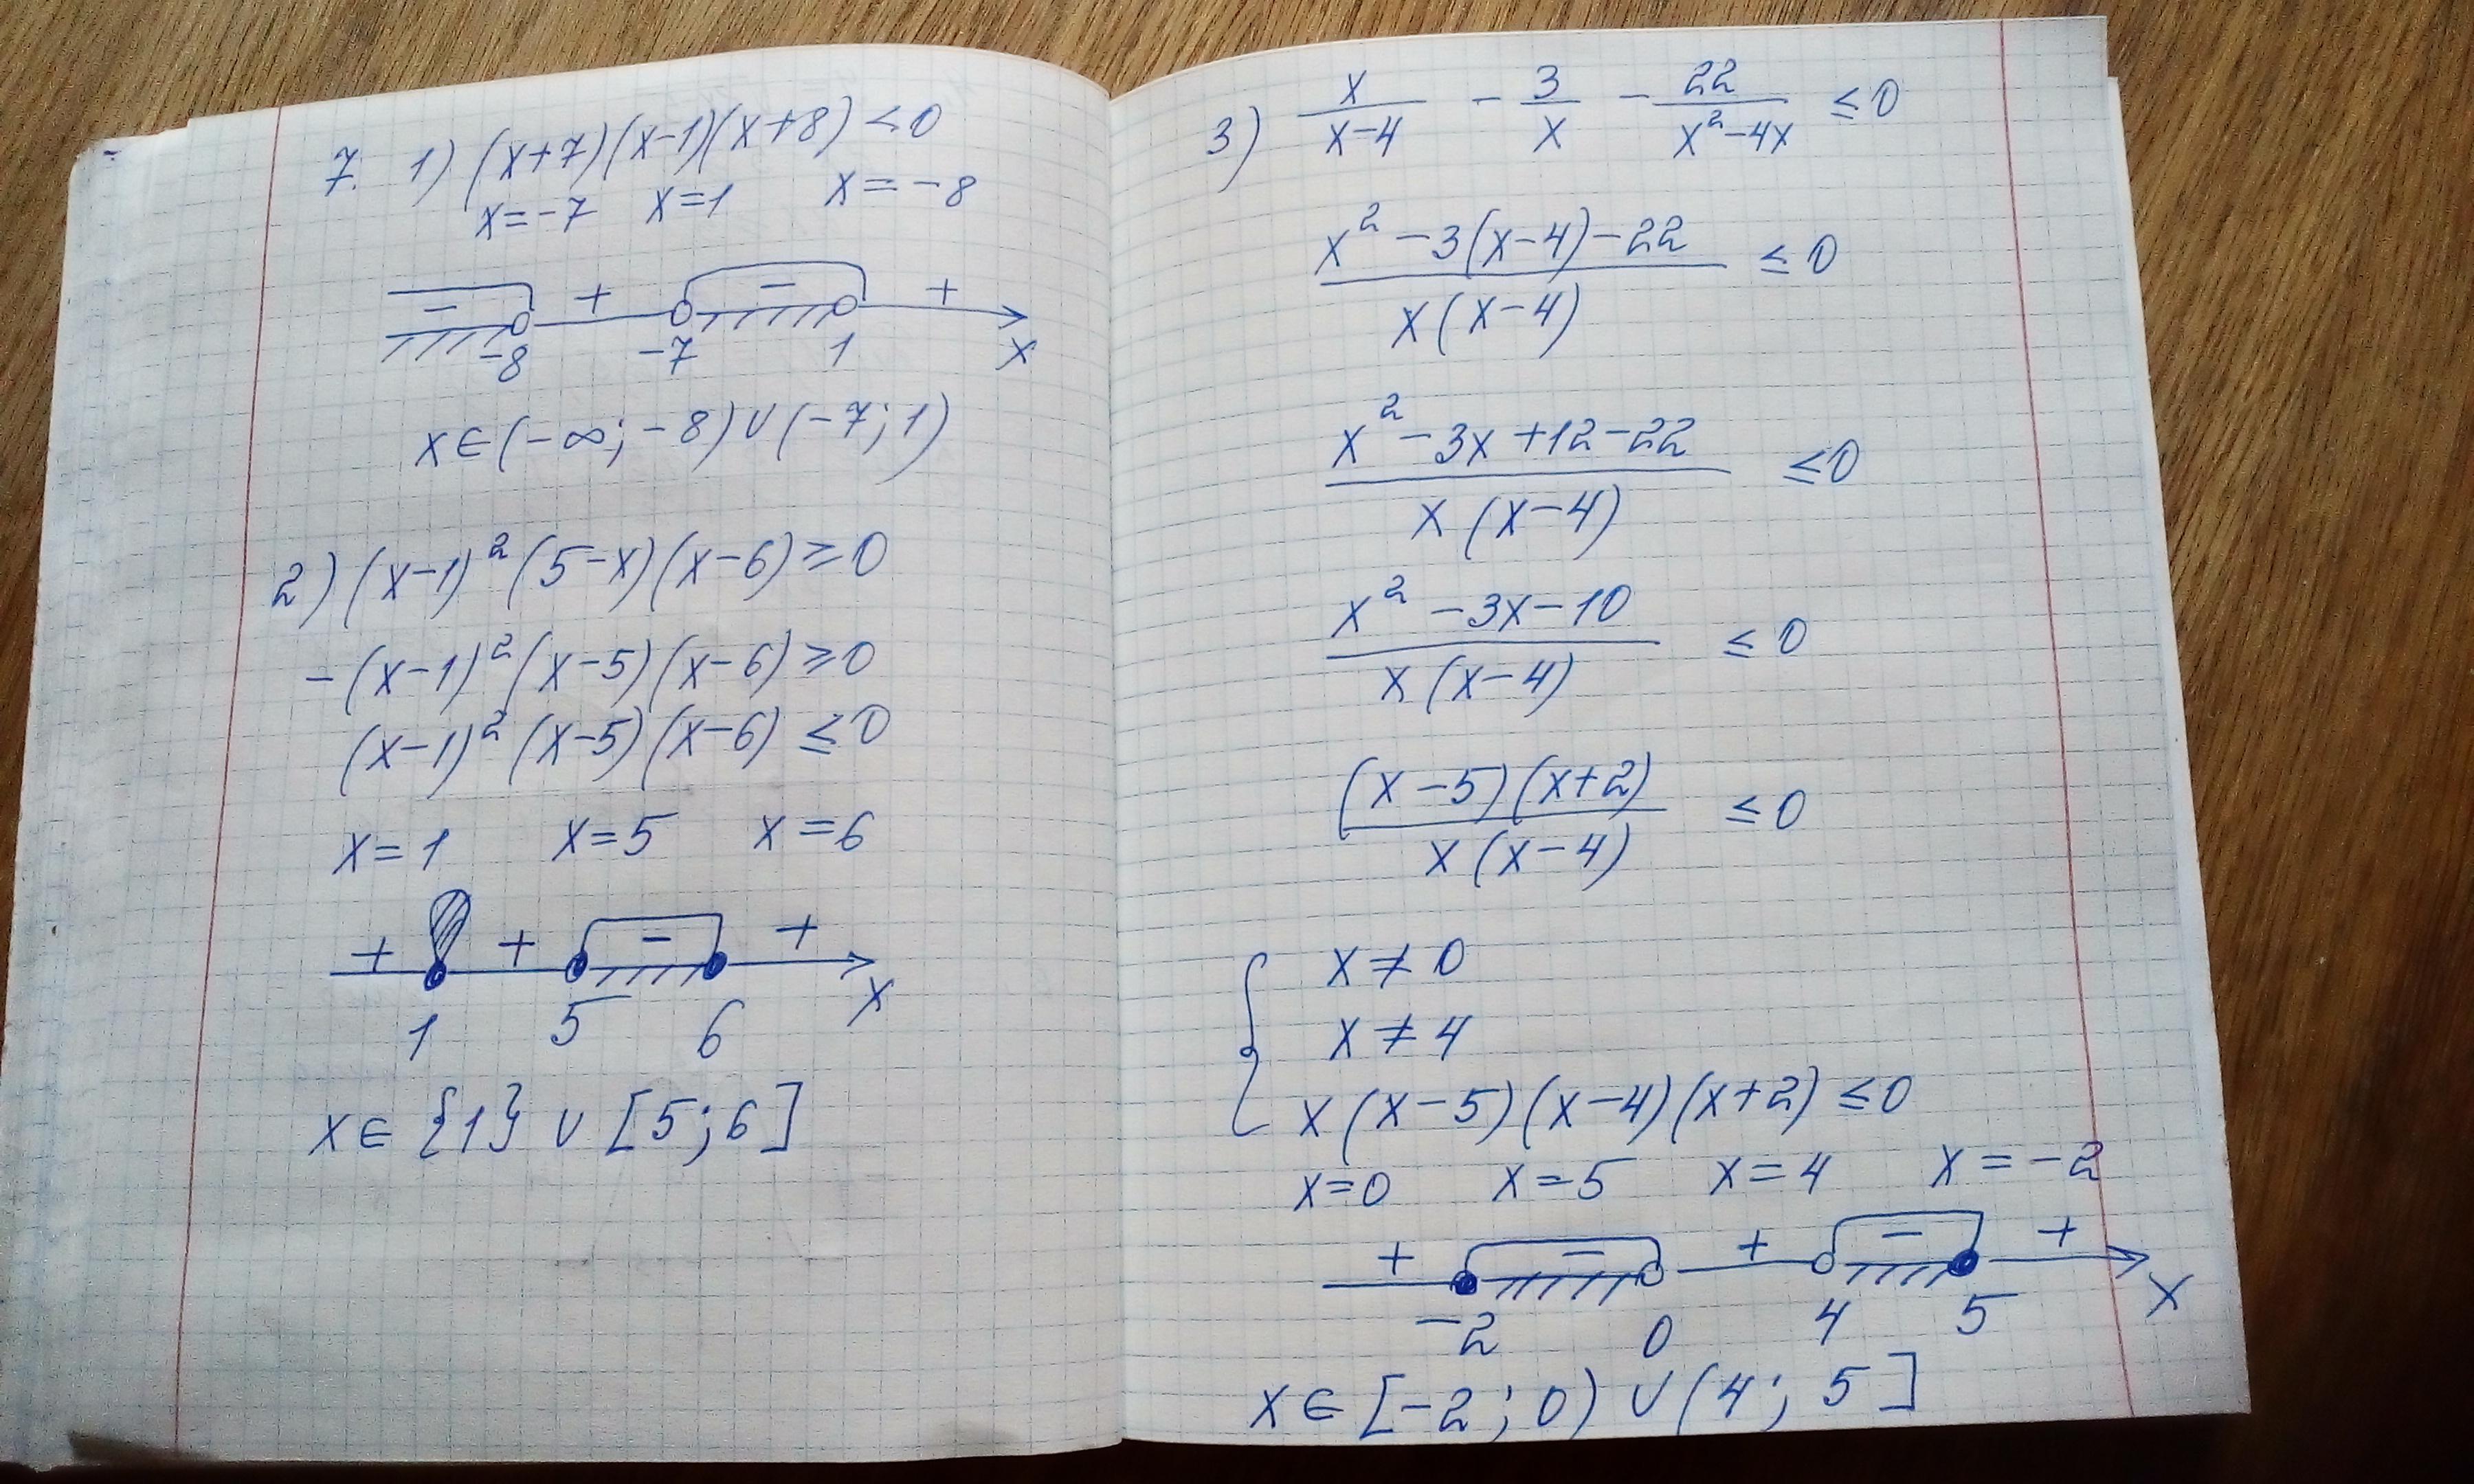 7. 1) (x+7)(x-1)(x+8) < 0
x=-7 x=1 x=-8
- + - +
-8 -7 1 x
x∈(-∞; -8)∪(-7; 1)
2) (x-1)²(5-x)(x-6) ≥ 0
-(x-1)²(x-5)(x-6) ≥ 0
(x-1)²(x-5)(x-6) ≤ 0
x=1 x=5 x=6
+ + - +
1 5 6 x
x∈ {1} ∪ [5; 6]
3) x/(x-4) - 3/x - 22/(x²-4x) ≤ 0
(x²-3(x-4)-22)/(x(x-4)) ≤ 0
(x²-3x+12-22)/(x(x-4)) ≤ 0
(x²-3x-10)/(x(x-4)) ≤ 0
((x-5)(x+2))/(x(x-4)) ≤ 0
{ x≠0
x≠4
x(x-5)(x-4)(x+2) ≤ 0
x=0 x=5 x=4 x=-2
+ - + - +
-2 0 4 5 x
x∈[-2; 0) ∪ (4; 5]